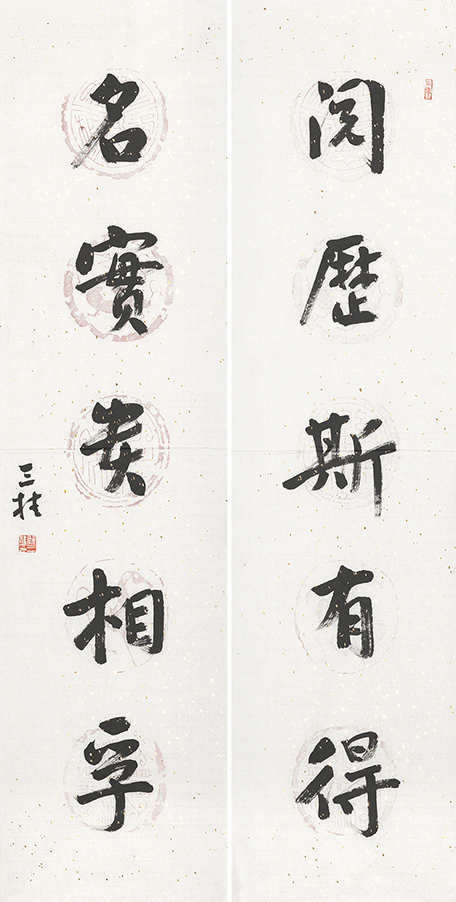 閱歷斯有得
名實貴相孚
三